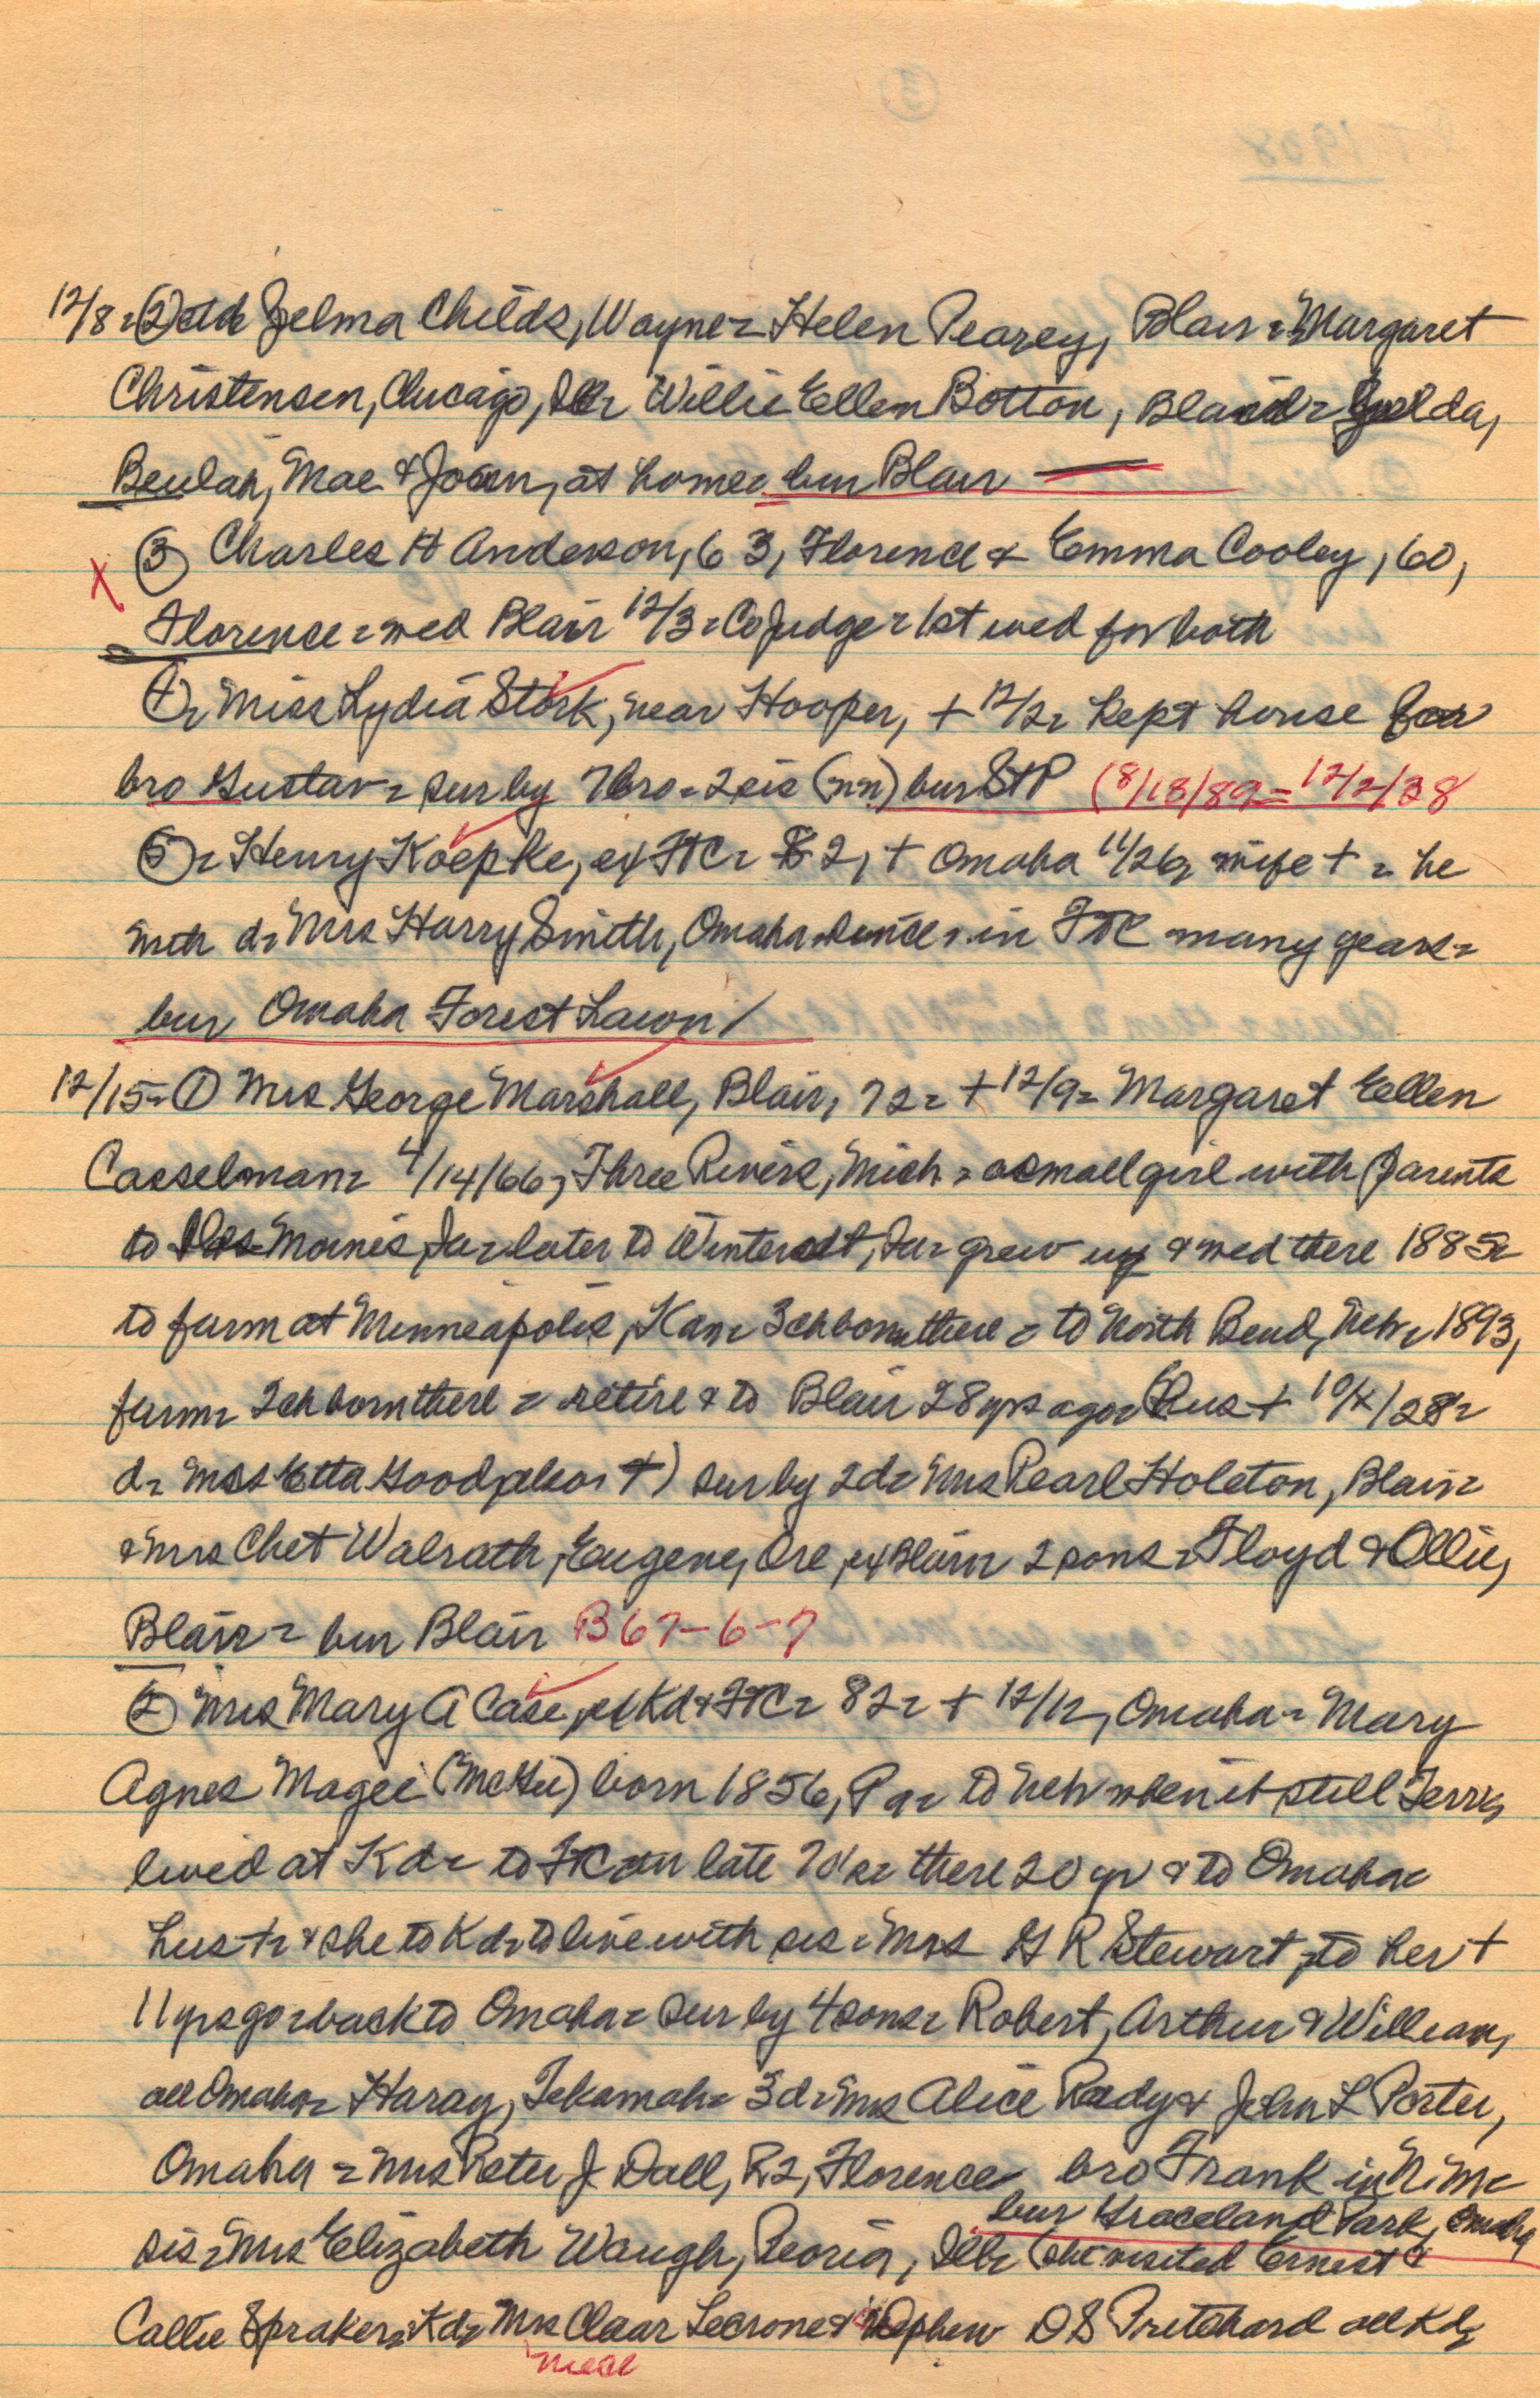 ③
1938
12/8 = ② ctd Zelma Childs, Wayne = Helen Pearey, Blair = Margaret
Christensen, Chicago, Ill = Willie Ellen Botton, Blair = Zelda,
Beulah, Mae & Joan, at home = bur Blair —
X ③ Charles H Anderson, 63, Florence & Emma Cooley, 60,
Florence = wed Blair 12/3 = Co Judge = 1st wed for both
④ = Miss Lydia Stork, near Hooper, + 12/2 = kept house for
bro Gustav = sur by 7 bro = 2 sis (nn) bur St P (8/18/89 = 12/2/38
⑤ = Henry Koepke, ex FtC = 82, + Omaha 11/26, wife + = he
with d = Mrs Harry Smith, Omaha since = in FtC many years =
bur Omaha Forest Lawn /
12/15 = ① Mrs George Marshall, Blair, 72 = + 12/9 = Margaret Ellen
Casselman = 4/14/66, Three Rivers, Mich = a small girl with parents
to Des Moines, Ia = later to Winterset, Ia = grew up & wed there 1885 =
to farm at Minneapolis, Kan = 3 ch born there = to North Bend, Neb = 1893,
farm = 2 ch born there = retire & to Blair 28 yrs ago = (hus + 10/x/28 =
d = Mrs Etta Good also +) sur by 2 d = Mrs Pearl Holston, Blair =
& Mrs Chet Walrath, Eugene, Ore, ex Blair = 2 sons = Floyd & Ollie,
Blair = bur Blair B 67-6-7
② Mrs Mary A Case, ex Kd & FtC = 82 = + 12/12, Omaha = Mary
Agnes Magee (McGee) born 1856, Pa = to Neb when it still Terr,
lived at Kd = to FtC in late 70's = there 20 yr & to Omaha =
hus + = & she to Kd = to live with sis = Mrs G R Stewart, to her +
11 yrs go = back to Omaha = sur by 4 sons = Robert, Arthur & William,
all Omaha = Harry, Tekamah = 3 d = Mrs Alice Rady & John L Porter,
Omaha = Mrs Peter J Dall, R2, Florence = bro Frank in N.M =
bur Graceland Park, Omaha
sis = Mrs Elizabeth Waugh, Peoria, Ill = (she visited Ernest &
Callie Spraker = Kd = Mrs Claar Lecrone & nephew O S Pritchard all Kd,
niece